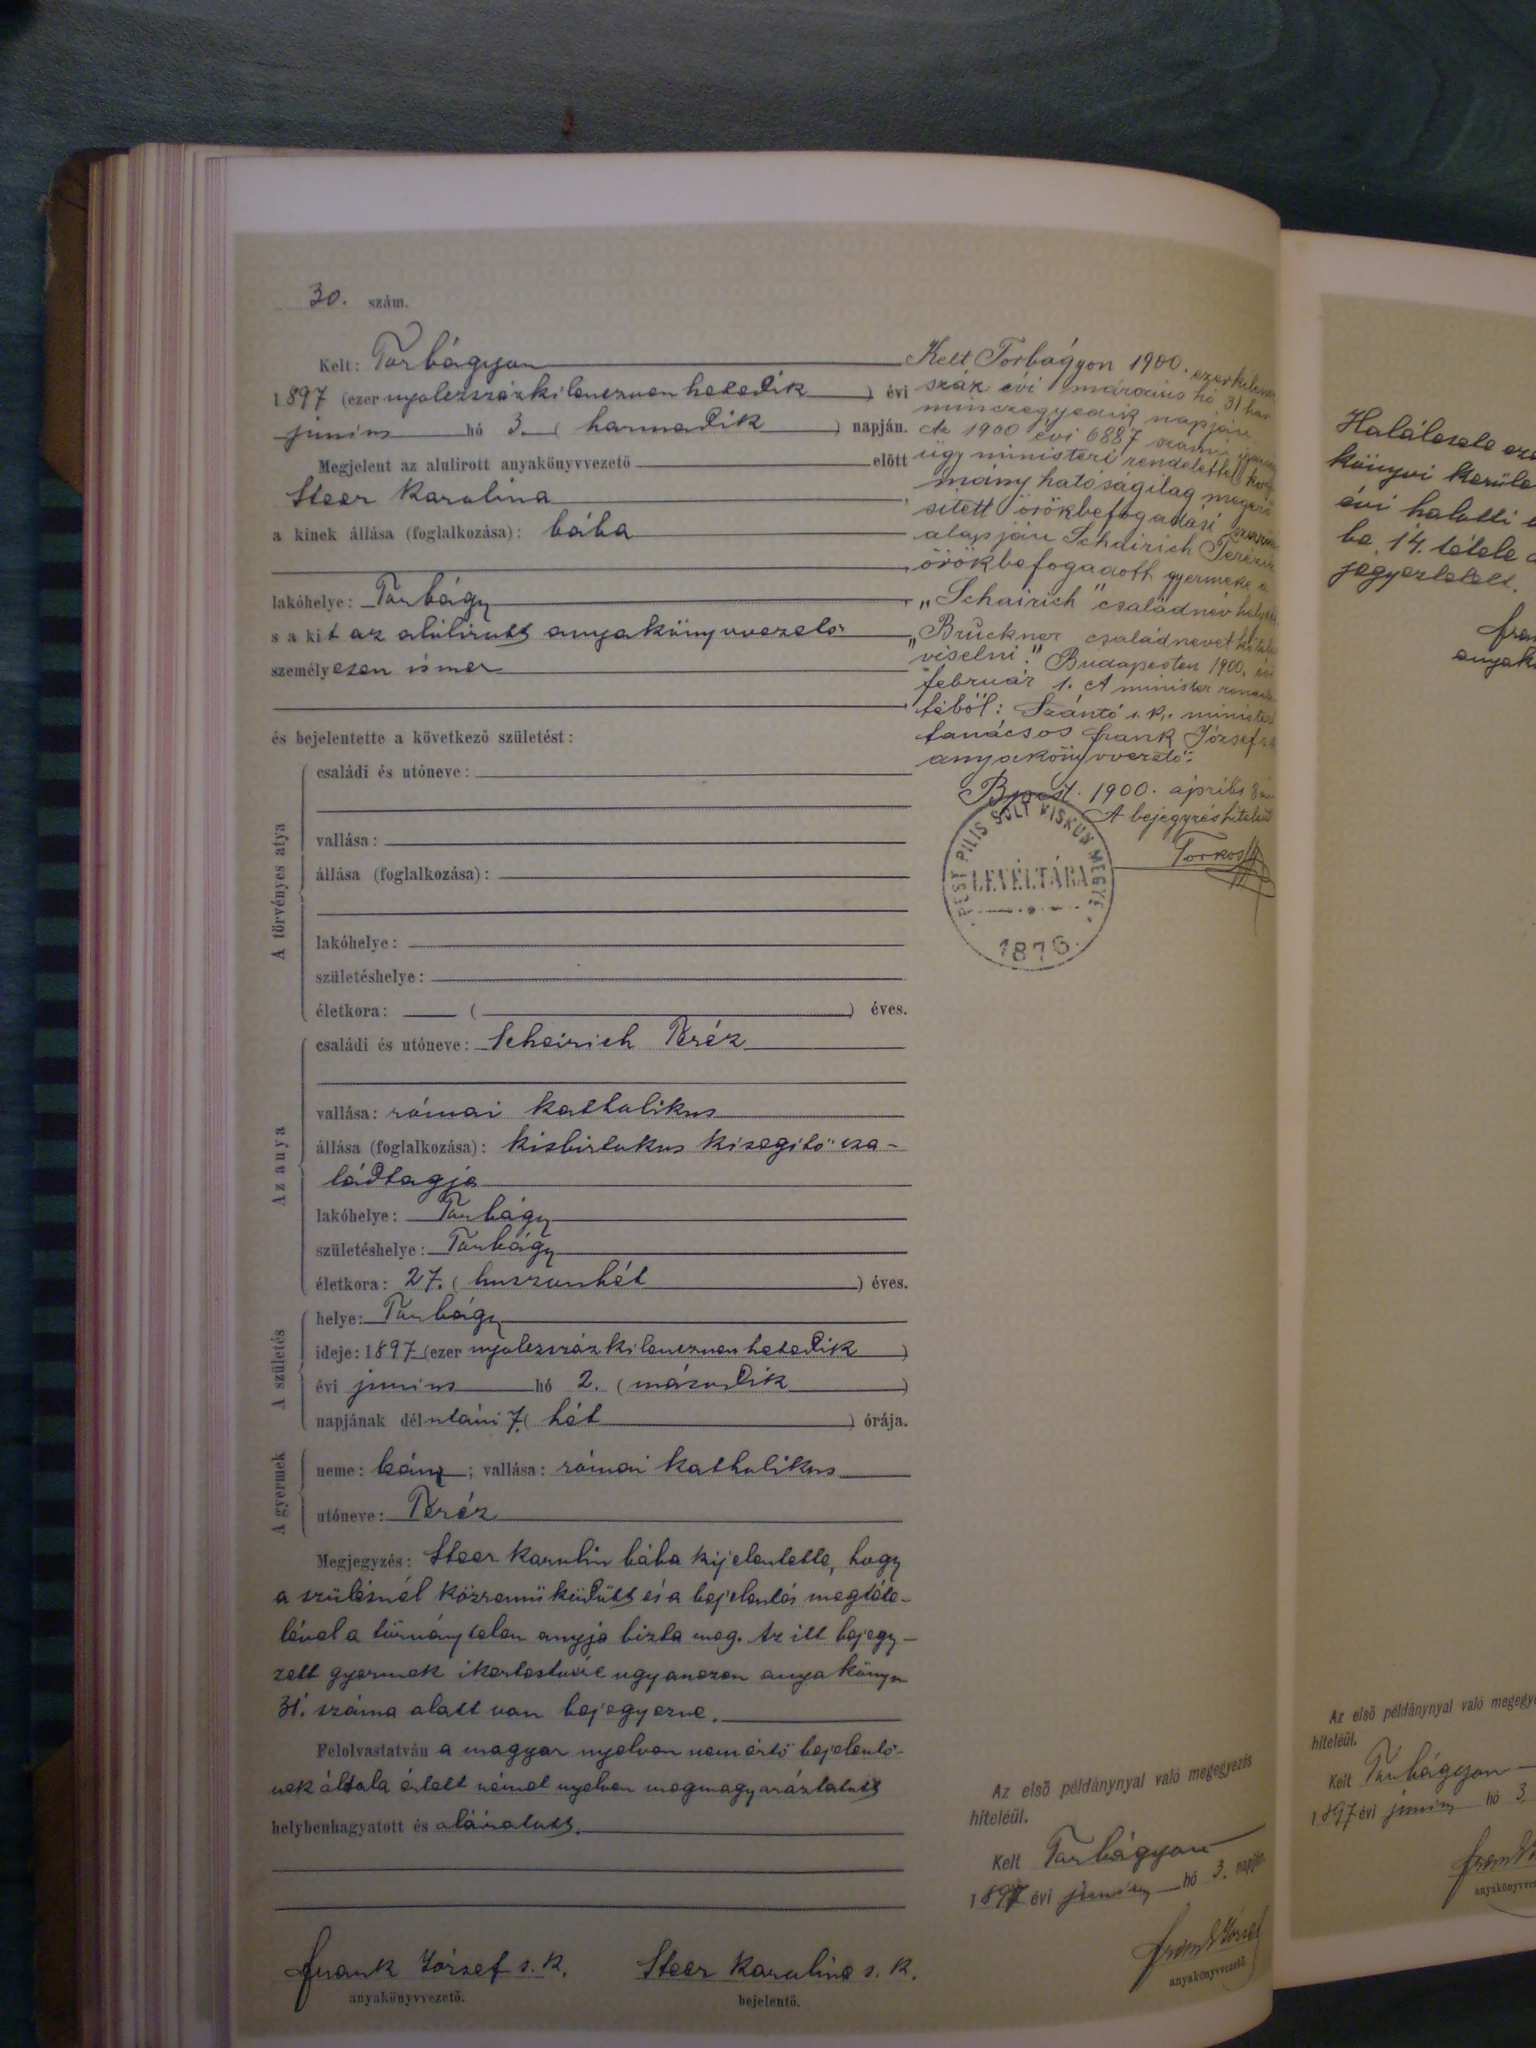 30. szám.
Kelt: Torbágyon
1897 (ezer nyolczszázkilenczvenhetedik) évi
junius hó 3. (harmadik) napján.
Megjelent az alulirott anyakönyvvezető előtt
Steer Karolina
a kinek állása (foglalkozása): bába
lakóhelye: Torbágy
s a kit az alúlirott anyakönyvvezető
személyesen ismer
és bejelentette a következő születést:
A törvényes atya
családi és utóneve:
vallása:
állása (foglalkozása):
lakóhelye:
születéshelye:
életkora: ( ) éves.
Az anya
családi és utóneve: Scheirich Teréz
vallása: római katholikus
állása (foglalkozása): kisbirtokos kisegitő csa-
ládtagja
lakóhelye: Torbágy
születéshelye: Torbágy
életkora: 27. (huszonhét) éves.
A születés
helye: Torbágy
ideje: 1897 (ezer nyolczszázkilenczvenhetedik)
évi junius hó 2. (második)
napjának délutáni 7. (hét) órája.
A gyermek
neme: leány; vallása: római katholikus
utóneve: Teréz
Megjegyzés: Steer Karolin bába kijelentette, hogy
a szülésnél közreműködött és a bejelentés megtéte-
lével a törvénytelen anyja bizta meg. Az itt bejegy-
zett gyermek ikertestvére ugyanezen anyakönyv
31. száma alatt van bejegyezve.
Felolvastatván a magyar nyelven nem értő bejelentő-
nek általa értett német nyelven megmagyaráztatott
helybenhagyatott és aláiratott.
Frank József s. k.
anyakönyvvezető.
Steer Karolina s. k.
bejelentő.
Kelt Torbágyon 1900. ezerkilencz
száz évi márczius hó 31 har
minczegyedik napján
A 1900 évi 6887 számú
ügyministeri rendelettel kor
mány hatóságilag megerő
sitett örökbefogadási
alapján Schairich Terézia
örökbefogadott gyermeke a
„Schairich" családnév helyett
„Brückner családnevet
viselni." Budapesten 1900. évi
február 1. A minister
téből: Szántó s. k. ministeri
tanácsos Frank József s. k.
anyakönyvvezető.
Bpest. 1900. április 8
A bejegyzés hiteléül
Torkos
PEST PILIS SOLT KISKUN MEGYE
LEVÉLTÁRA
1876.
Az első példánynyal való megegyezés
hiteléül.
Kelt Torbágyon
1897 évi junius hó 3. napján.
Frank József
anyakönyvvezető.
Halálesete
könyvi kerüle
évi halotti
ba 14. tétele
jegyeztetett.
Az első példánynyal való megegye
hiteléül.
Kelt Torbágyon
1897 évi junius hó 3.